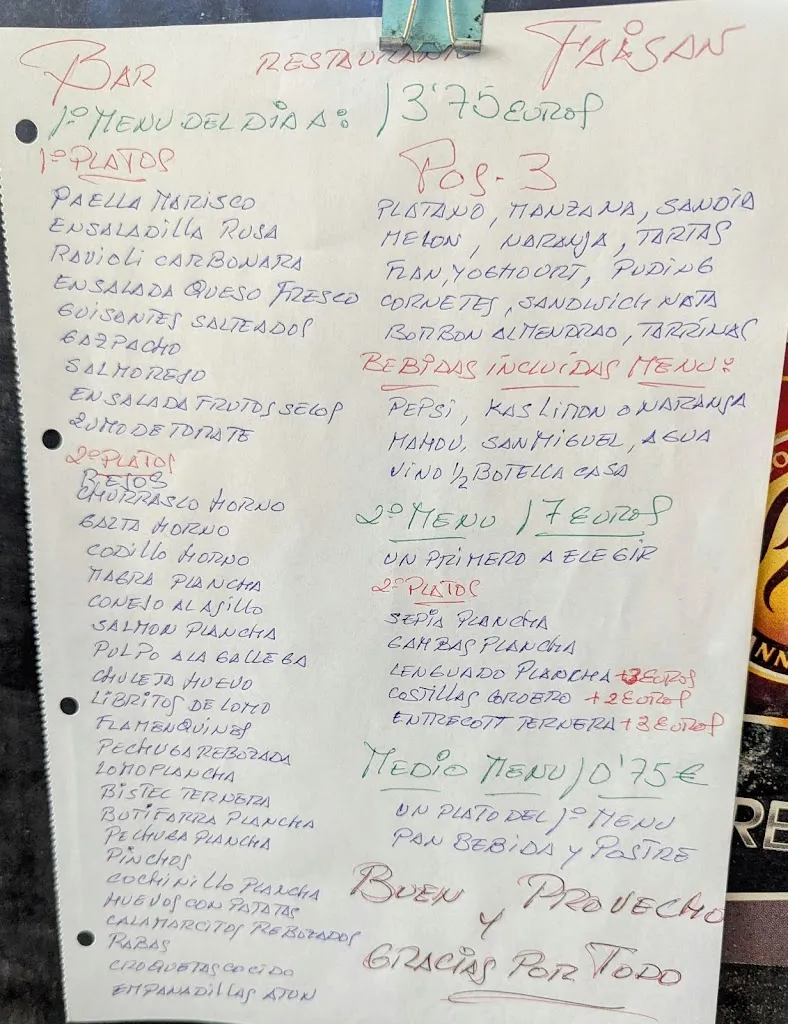 BAR RESTAURANT FAISAN
1º MENU DEL DIA A: 13'75 EUROS
1º PLATOS
PAELLA MARISCO
ENSALADILLA RUSA
RAVIOLI CARBONARA
ENSALADA QUESO FRESCO
GUISANTES SALTEADOS
GAZPACHO
SALMOREJO
ENSALADA FRUTOS SECOS
ZUMO DE TOMATE
2º PLATOS
BESOS
CHURRASCO HORNO
GALTA HORNO
CODILLO HORNO
MAGRA PLANCHA
CONEJO AL AJILLO
SALMON PLANCHA
PULPO A LA GALLEGA
CHULETA HUEVO
LIBRITOS DE LOMO
FLAMENQUINES
PECHUGA REBOZADA
LOMO PLANCHA
BISTEC TERNERA
BUTIFARRA PLANCHA
PECHUGA PLANCHA
PINCHOS
COCHINILLO PLANCHA
HUEVOS CON PATATAS
CALAMARCITOS REBOZADOS
RABAS
CROQUETAS COCIDO
EMPANADILLAS ATUN
POS-3
PLATANO, MANZANA, SANDIA
MELON, NARANJA, TARTAS
FLAN, YOGHOURT, PUDING
CORNETES, SANDWICH NATA
BOMBON ALMENDRAO, TARRINAS
BEBIDAS INCLUIDAS MENU:
PEPSI, KAS LIMON O NARANJA
MAHOU, SAN MIGUEL, AGUA
VINO 1/2 BOTELLA CASA
2º MENU 17 EUROS
UN PRIMERO A ELEGIR
2º PLATOS
SEPIA PLANCHA
GAMBAS PLANCHA
LENGUADO PLANCHA +3 EUROS
COSTILLAS CORDERO +2 EUROS
ENTRECOTT TERNERA +3 EUROS
MEDIO MENU 10'75 €
UN PLATO DEL 1º MENU
PAN BEBIDA Y POSTRE
BUEN PROVECHO
Y
GRACIAS POR TODO
RE